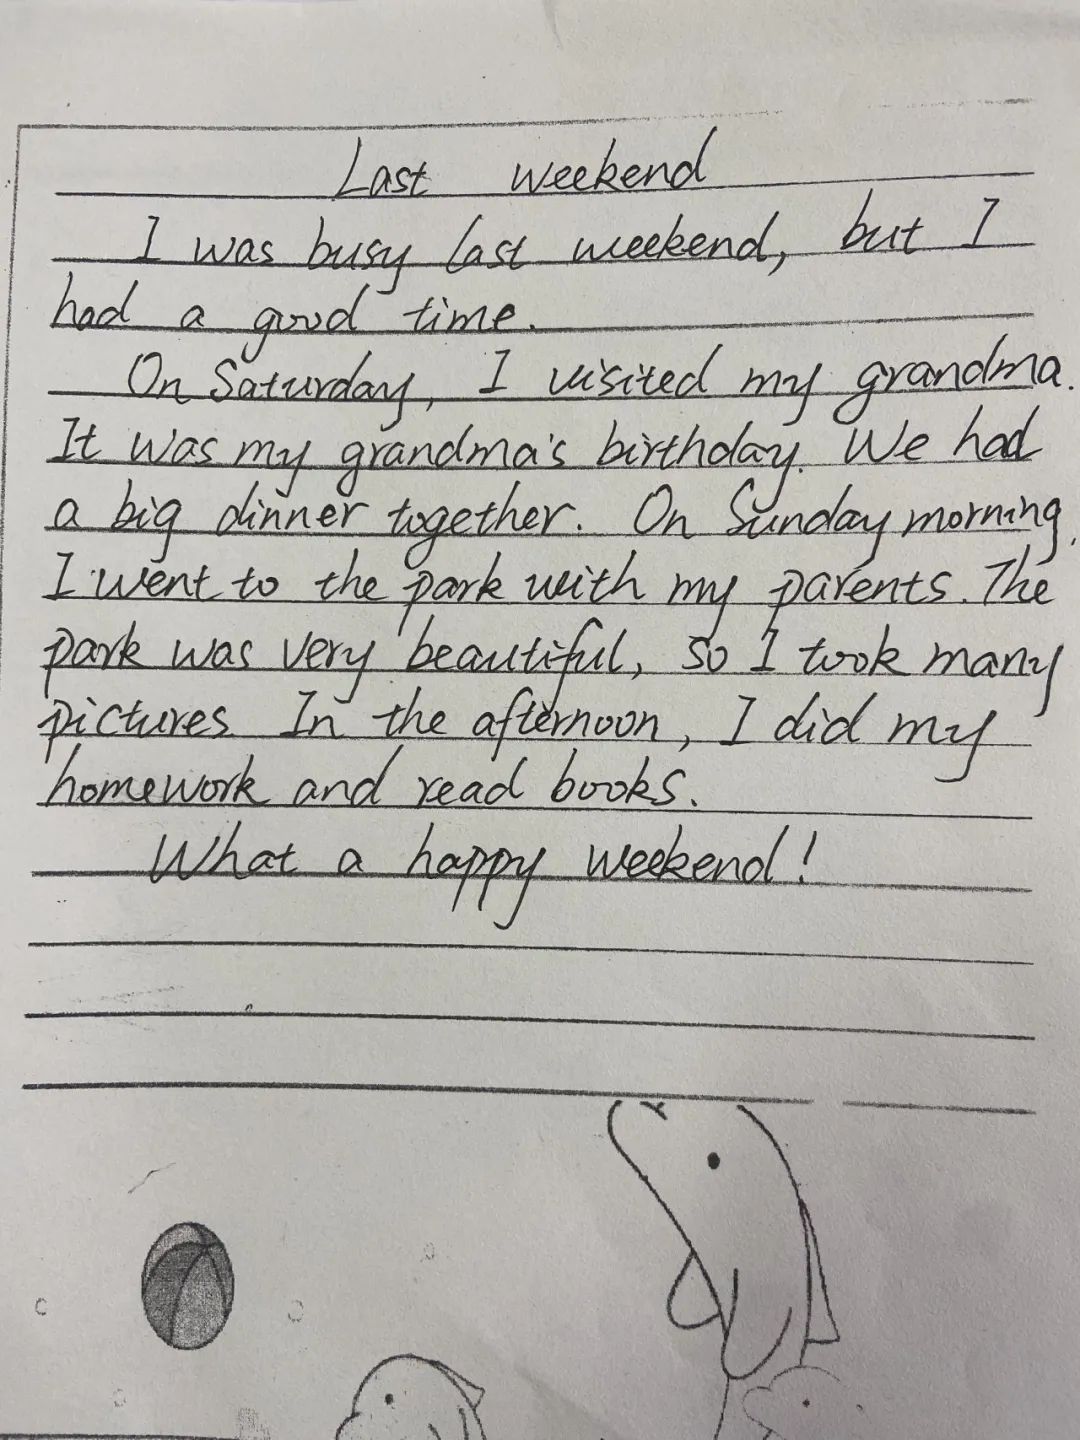 Last weekend
I was busy last weekend, but I
had a good time.
On Saturday, I visited my grandma.
It was my grandma's birthday. We had
a big dinner together. On Sunday morning,
I went to the park with my parents. The
park was very beautiful, so I took many
pictures In the afternoon, I did my
homework and read books.
What a happy weekend!